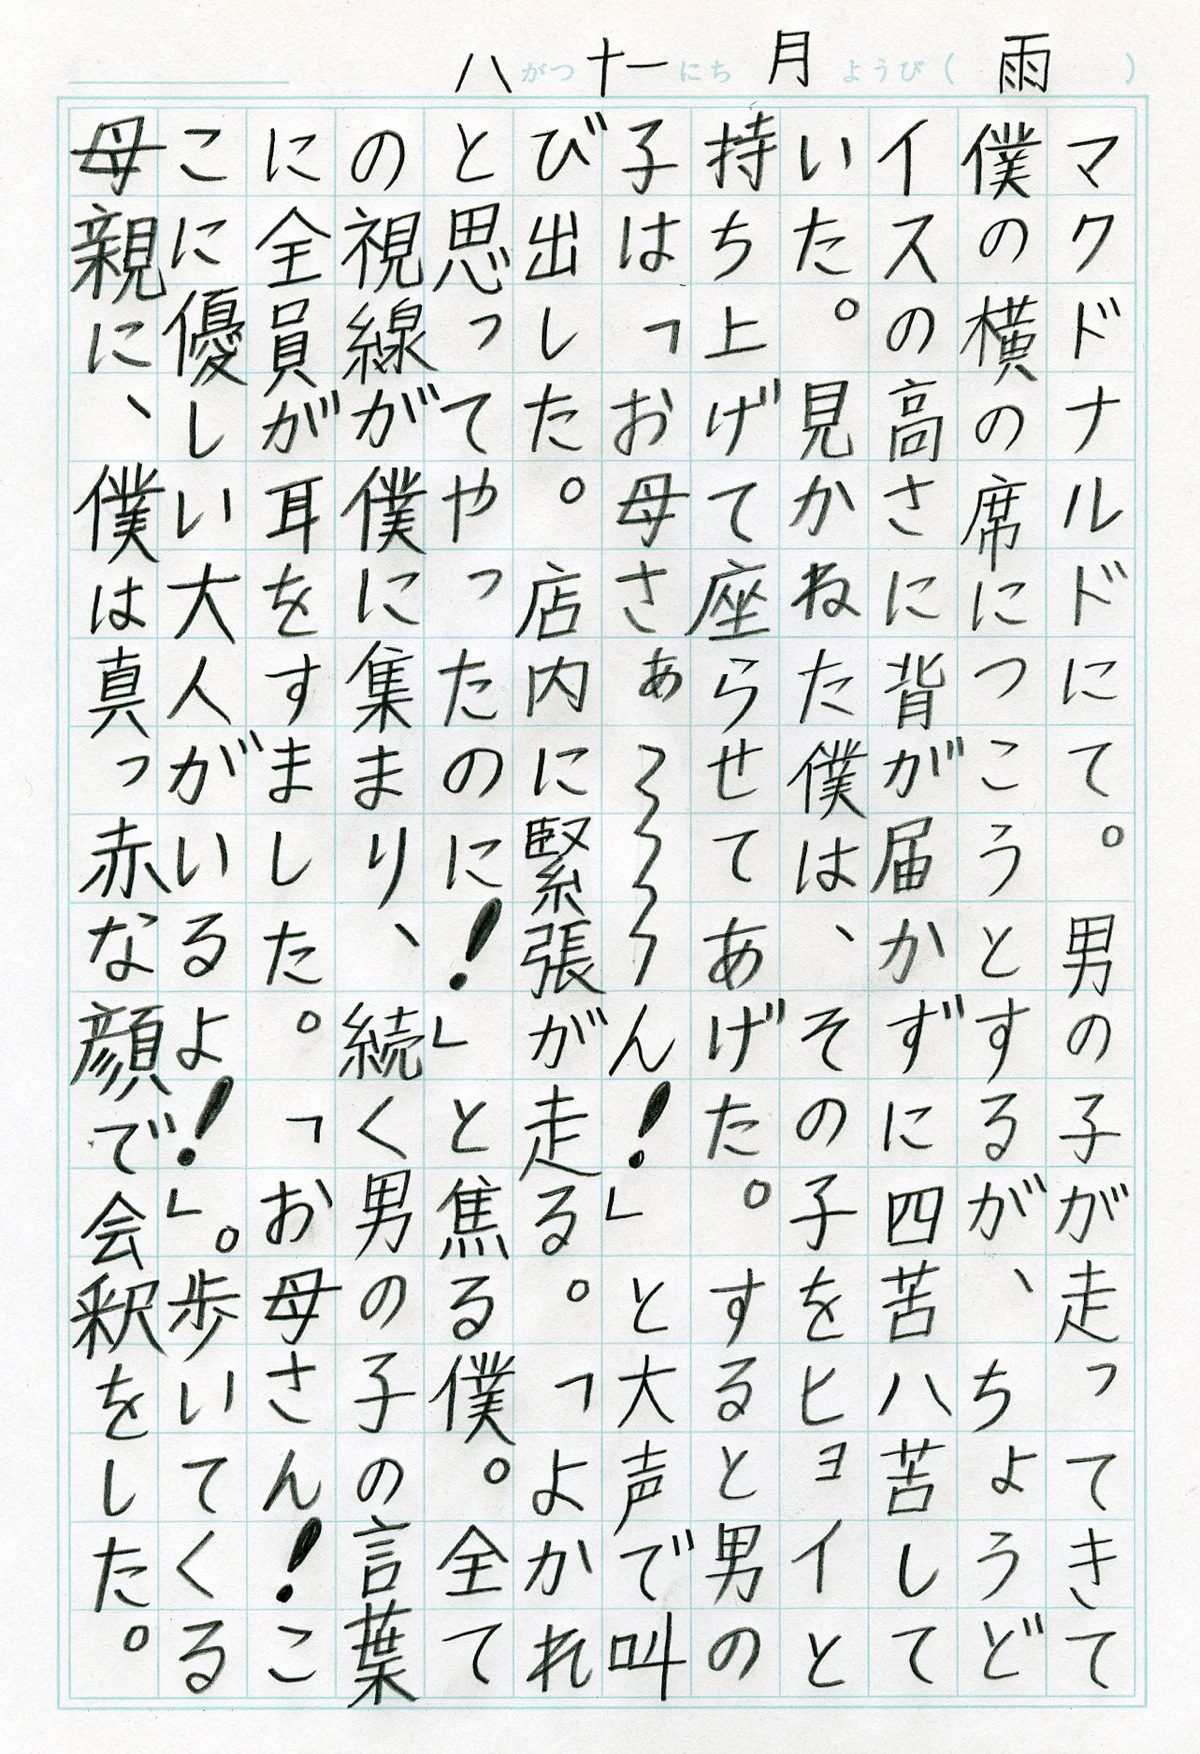 八がつ十一にち月ようび(雨)
マクドナルドにて。男の子が走ってきて
僕の横の席につこうとするが、ちょうど
イスの高さに背が届かずに四苦八苦して
いた。見かねた僕は、その子をヒョイと
持ち上げて座らせてあげた。すると男の
子は「お母さぁ〜〜〜ん!」と大声で叫
び出した。店内に緊張が走る。「よかれ
と思ってやったのに!」と焦る僕。全て
の視線が僕に集まり、続く男の子の言葉
に全員が耳をすました。「お母さん!こ
こに優しい大人がいるよ!」。歩いてくる
母親に、僕は真っ赤な顔で会釈をした。